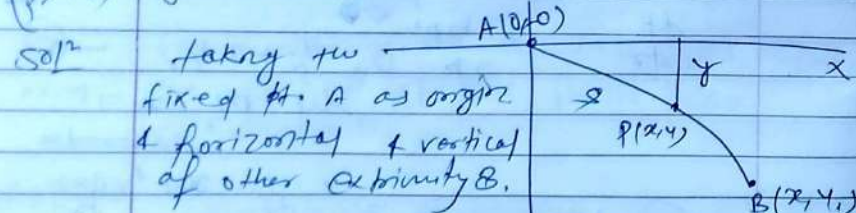 A(0,0)
Sol² taking two
fixed pt. A as origin
& horizontal & vertical
of other extrimity B.
x
y
s
P(x,y)
B(x, y,)